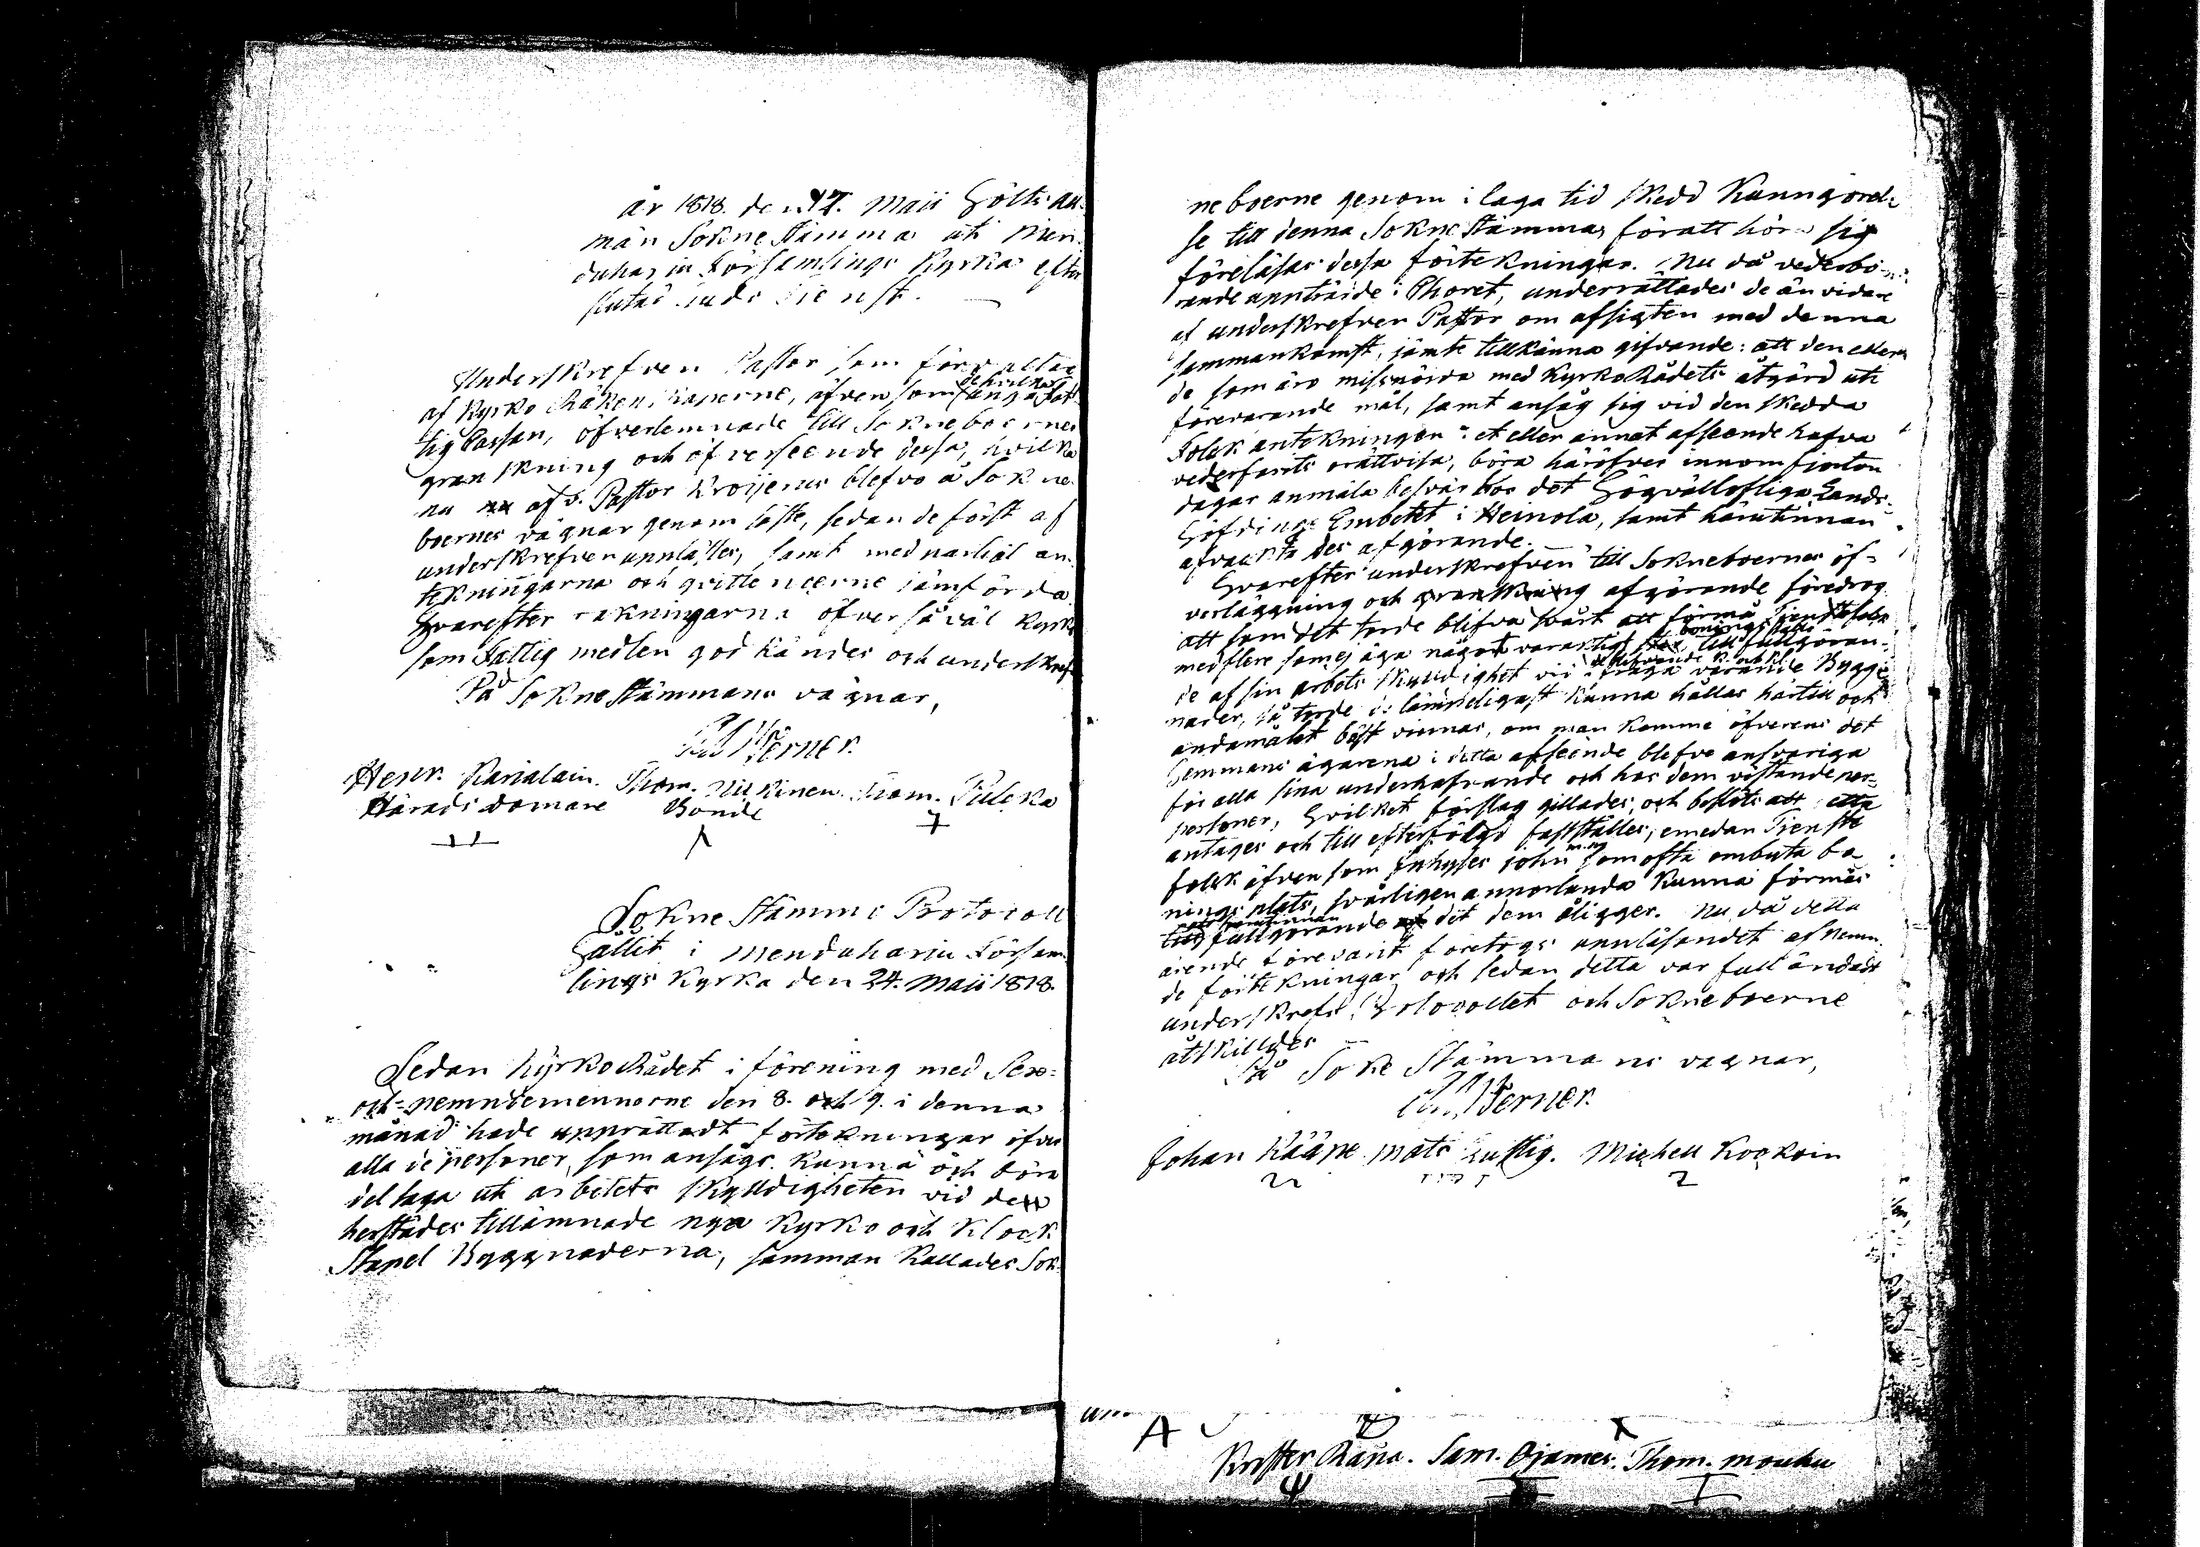 år 1818. den 17. Maii Hölts all-
män SokneStämma uti Men-
duharju Församlings Kyrka efter
slutad Guds Tienst.
Underskrefven Pastor som förvaltar
af Kyrko Räkenskaperne, äfvensom de hvilka angå Fat-
tig Cassan, öfverlemnade till Sokneboernes
granskning och öfverseende dessa, hvilka
nu af v. Pastor Kroijerus blefvo å Sokne-
boernes vägnar genomläste, sedan de först af
underskrefven uppläстes, samt med partial an-
tekningarna och qvittencerne jämförda
Hvarefter räkningarna öfver såväl Kyrko
som Fattig medlen godkändes och underskrefs
På SokneStämmans vägnar,
Werner.
Henr. Karialain. Thom. Nickinen. Thom. Pulcka
Härads Domare Bonde
Sokne Stämmo Protocoll
Hållit i Menduharju Försam-
lings Kyrka den 24. Maii 1818.
Sedan KyrkoRådet i förening med Sex-
och Nemndemennerne den 8. och 9. i denna
månad hade upprättadt förtekningar öfver
alla de personer, som ansågs kunna och böra
deltaga uti arbetets skylldigheten vid den
herstädes tillämnade nya Kyrko och Klock
Stapel Byggnaderna, samman kallades Sok-
neboerne genom i laga tid skedd Kunngörel-
se till denna SokneStämma, föratt höra sig
föreläsas dessa förtekningar. Nu då vederbö-
rande uppträdde i Choret, underrättades de än vidare
af underskrefven Pastor om afsigten med denna
sammankomst, jämte tillkänna gifvande: att den eller
de som äro missnöjda med KyrkoRådets åtgärd uti
förevarande mål, samt ansåg sig vid den skedda
Folck antekningen i et eller annat afseende hafva
vederfarits orättvisa, böra häröfver innom fjorton
dagar anmäla besvär hos det Högvällofliga Lands-
Höfdinge Embetet i Heinola, samt härutinnan
afvackta des afgörande.
Hvarefter underskrefven till Sokneboernes öf-
verläggning och granskning afgörande föredrog
att som det torde blifva svårt att förmå Tienstefolck
med flere som ej äga något varaktigt bonings ställe till fullgöran-
de af sin arbets skylldighet vid i fråga varande Bygg-
nader, så torde de lämpeligast kunna hållas härtill och
ändamålet bäst vinnas, om man komme öfverens det
Hemmans ägarena i detta afseende blefve ansvariga
för alla sina underhafvande och hos dem vistande per-
personer, Hvilket förslag gillades, och beslöts att detta
antages och till efterföljd fastställes, emedan Tienste
folck äfvensom Inhyses john m. m. som ofta ombyta bo-
nings plats, svårligen annorlunda kunna förmås
till fullgörande af det dem åligger. Nu då detta
ärende förevarit företogs uppläsandet af nemn-
de förtekningar och sedan detta var fulländadt
underskrefs Protocollet och Sokneboerne
åtskilldes
På SokneStämmans vägnar,
Werner.
Johan Kääpe Mats Lustig. Michell Kockoin
Krister Räna. Sam. Ojames. Thom. Mouhu